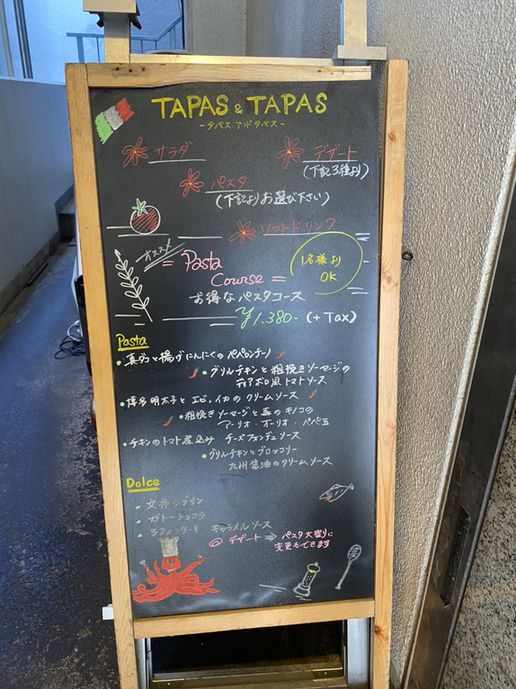 TAPAS & TAPAS
-タパス アンド タパス-
サラダ
デザート
(下記3種より)
パスタ
(下記よりお選び下さい)
ソフトドリンク
オススメ
Pasta
Course
1名様より
OK
お得なパスタコース
¥1.380- (+Tax)
Pasta
・真ダコと揚げにんにくのペペロンチーノ
・グリルチキンと粗挽きソーセージの
ディアボロ風トマトソース
・博多明太子とエビ、イカのクリームソース
・粗挽きソーセージと森のキノコの
アーリオ・オーリオ・ペペ玉
・チキンのトマト煮込み チーズフォンデュソース
・グリルチキンとブロッコリー
九州醤油のクリームソース
Dolce
・女神のプリン
・ガトーショコラ
・シフォンケーキ キャラメルソース
デザート ⇒ パスタ大盛りに
変更もできます